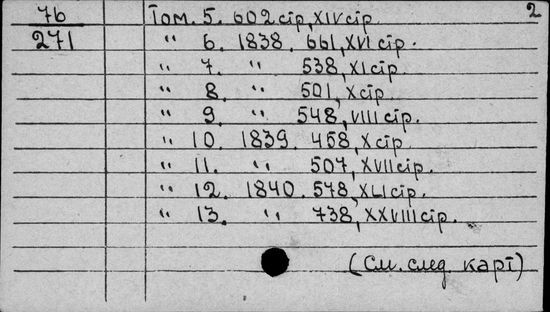 76 Том. 5. 602 стр, XIV стр. 2
271 " 6. 1838. 661, XVI стр.
" 7. " 538, XI стр.
" 8. " 501, X стр.
" 9. " 548, VIII стр.
" 10. 1839. 458, X стр.
" 11. " 507, XVII стр.
" 12. 1840. 578, XLI стр.
" 13. " 738, XXVIII стр.
(См. след карт)